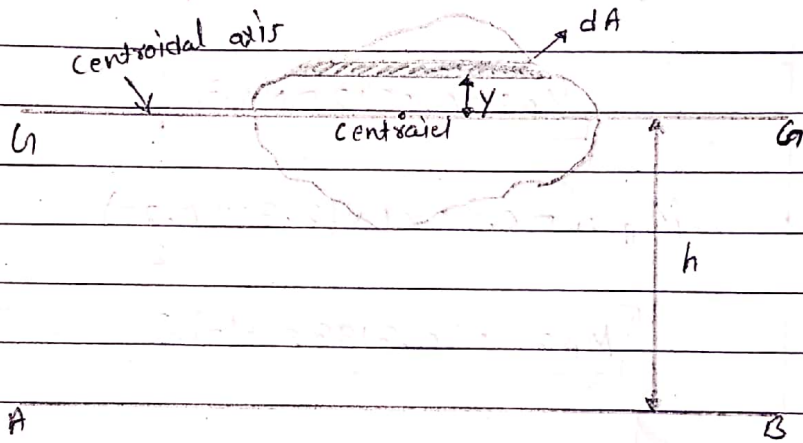 dA
centroidal axis
y
G
centroid
G
h
A
B